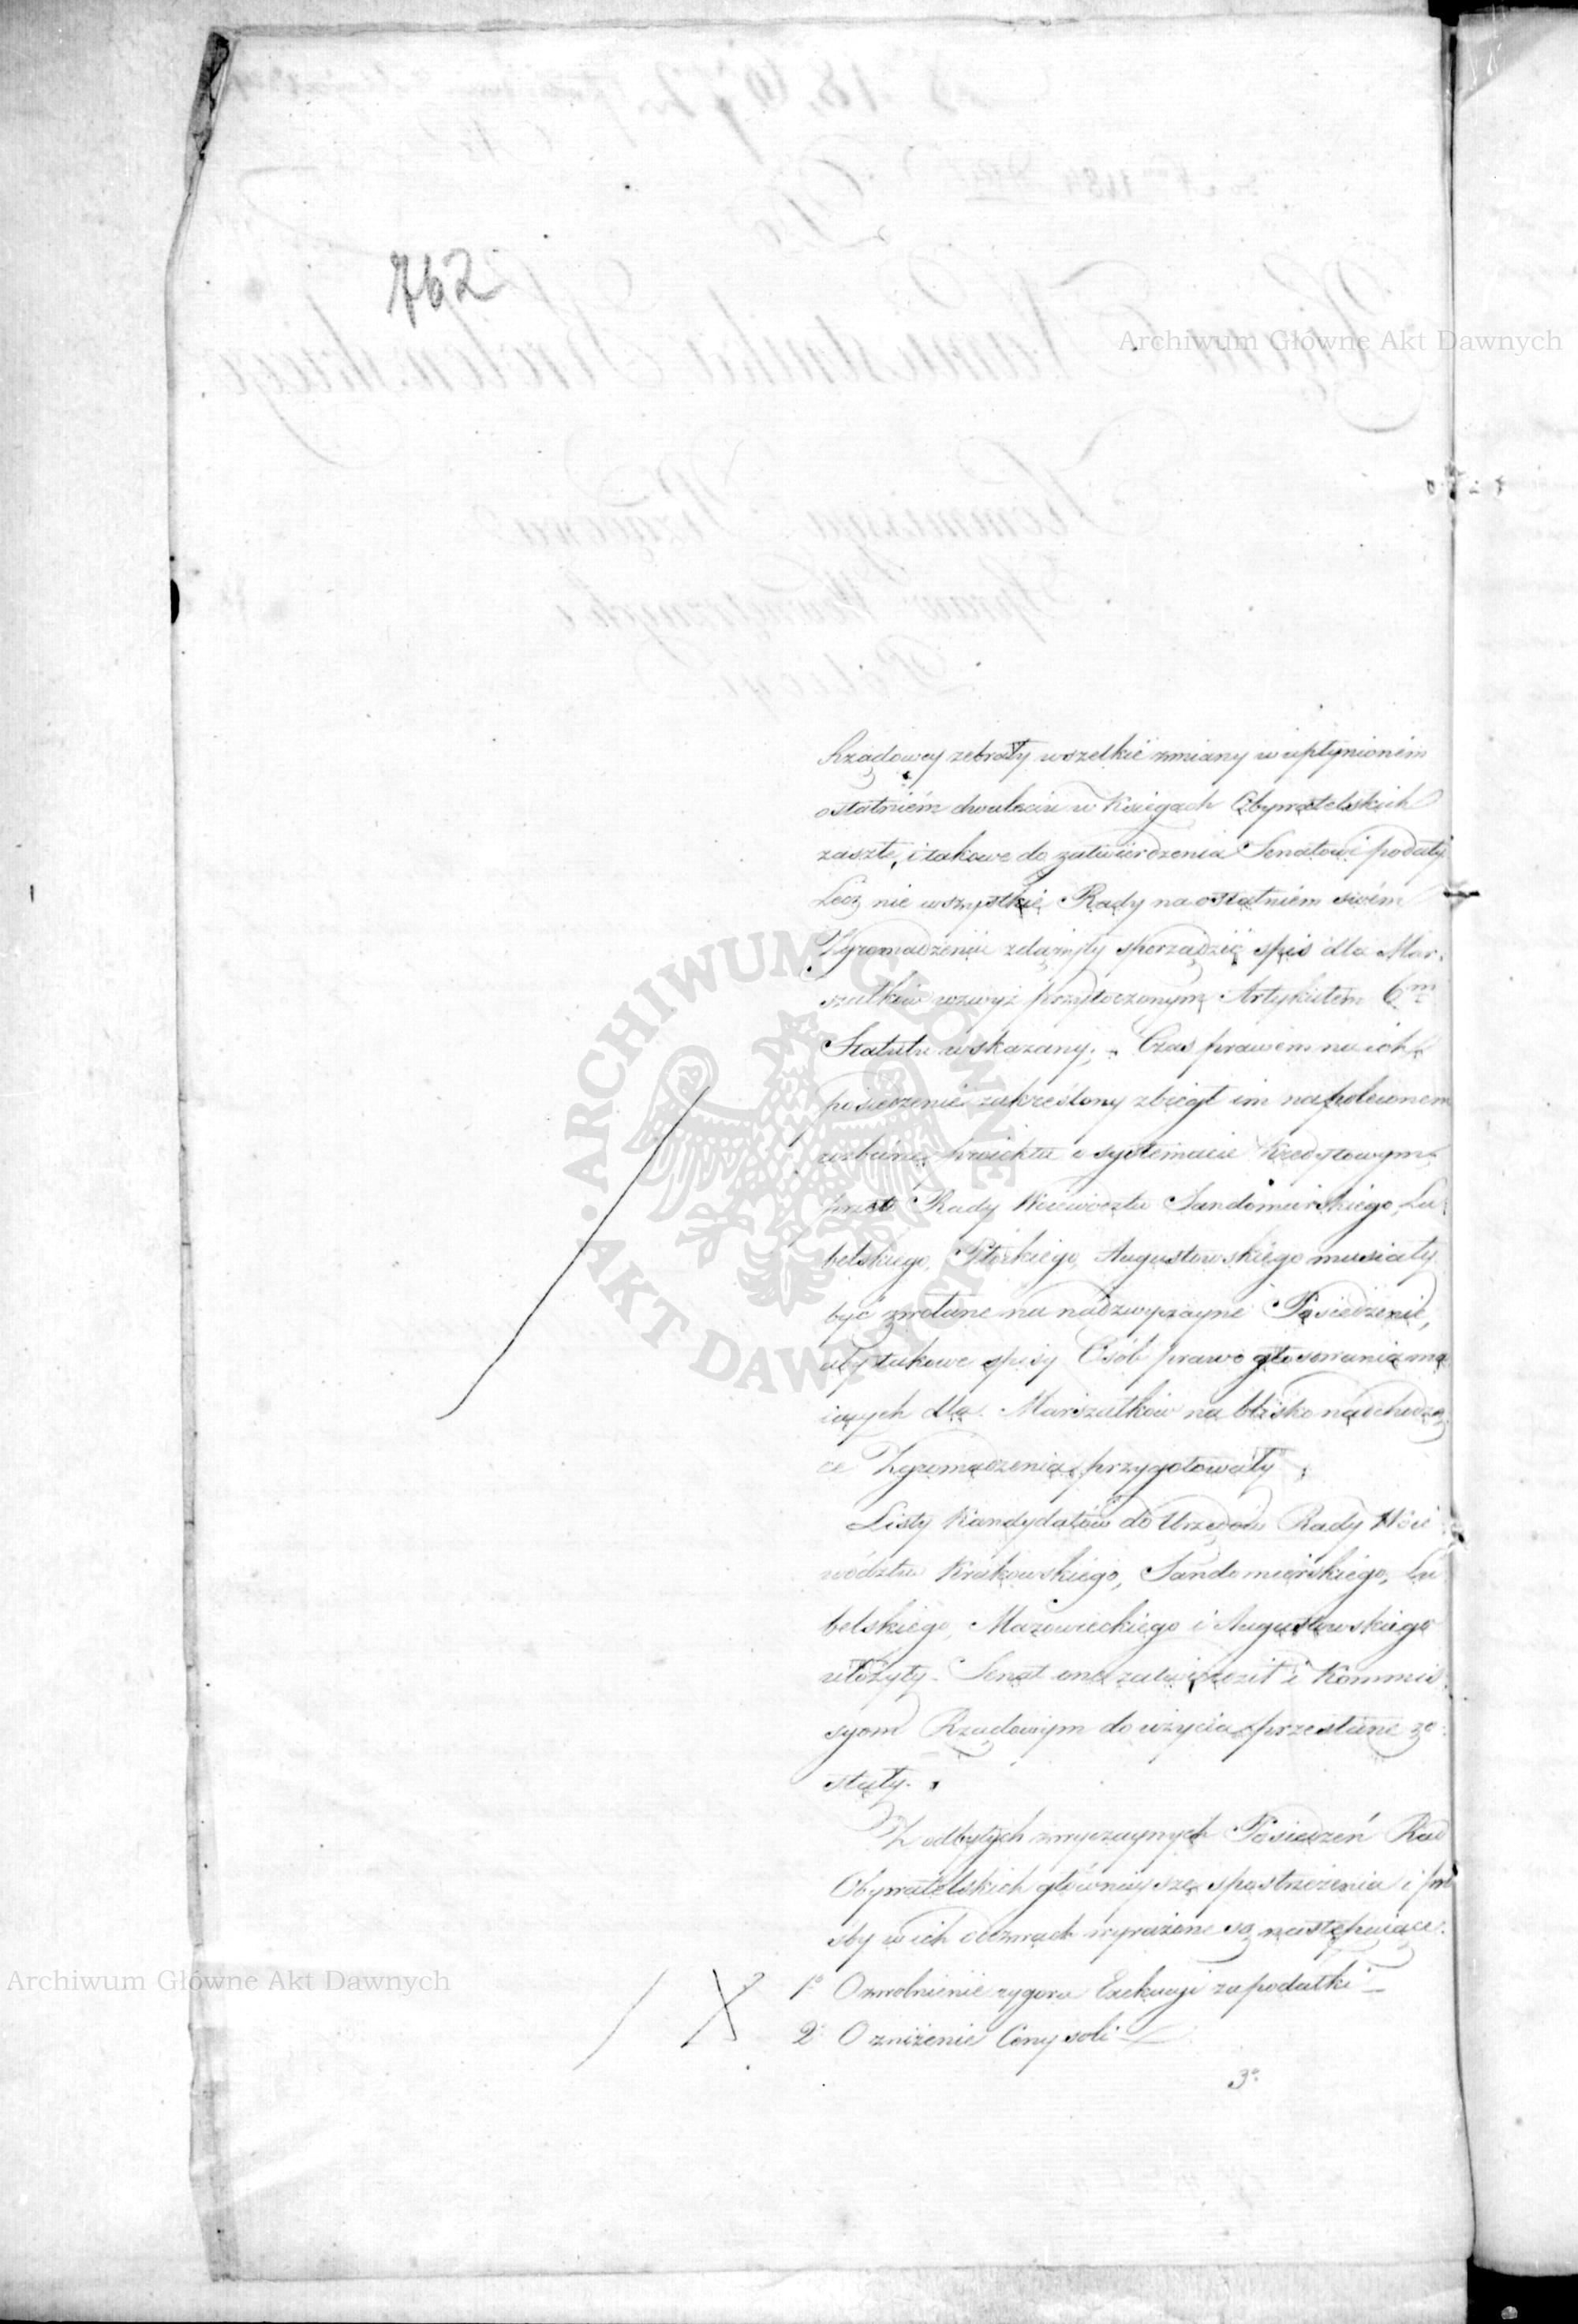 762
Archiwum Główne Akt Dawnych
Rządowey zebrały wszelkie zmiany w upłynionem
ostatniém dwuleciu w Księgach Obywatelskich
zaszłe, i takowe do zatwierdzenia Senatowi podały
Lecz nie wszystkie Rady na ostatniem swém
Zgromadzeniu zdążyły sporządzić spis dla Mar-
szałków wzwyż przytoczonym Artykułem 6m
Statutu wskazany; Czas prawem na ich
posiedzenie zakreślony zbiegł im na poleconem
rozbiorze proiektu o systemacie Kredytowym
przeto Rady Woiewództw Sandomierskiego, Lu-
belskiego, Płockiego, Augustowskiego musiały
być zwołane na nadzwyczayne Posiedzenie,
aby takowe spisy Osób prawo głosowania ma
iących dla Marszałków na blisko nadchodzą
ce Zgromadzenia przygotowały.
Listy Kandydatów do Urzędów Rady Woie
wództw Krakowskiego, Sandomierskiego, Lu
belskiego, Mazowieckiego i Augustowskiego
ułożyły. Senat one zatwierdził i Kommis
syom Rządowym do użycia przesłane zo-
stały.
Z odbytych zwyczaynych Posiedzeń Rad
Obywatelskich głównieysze spostrzeżenia i pro
śby w ich odezwach wyrażone są następuiące.
1o O zwolnienie rygoru Exekucyi za podatki
2o O zniżenie Ceny soli
3o
Archiwum Główne Akt Dawnych
ARCHIWUM GŁÓWNE
AKT DAWNYCH